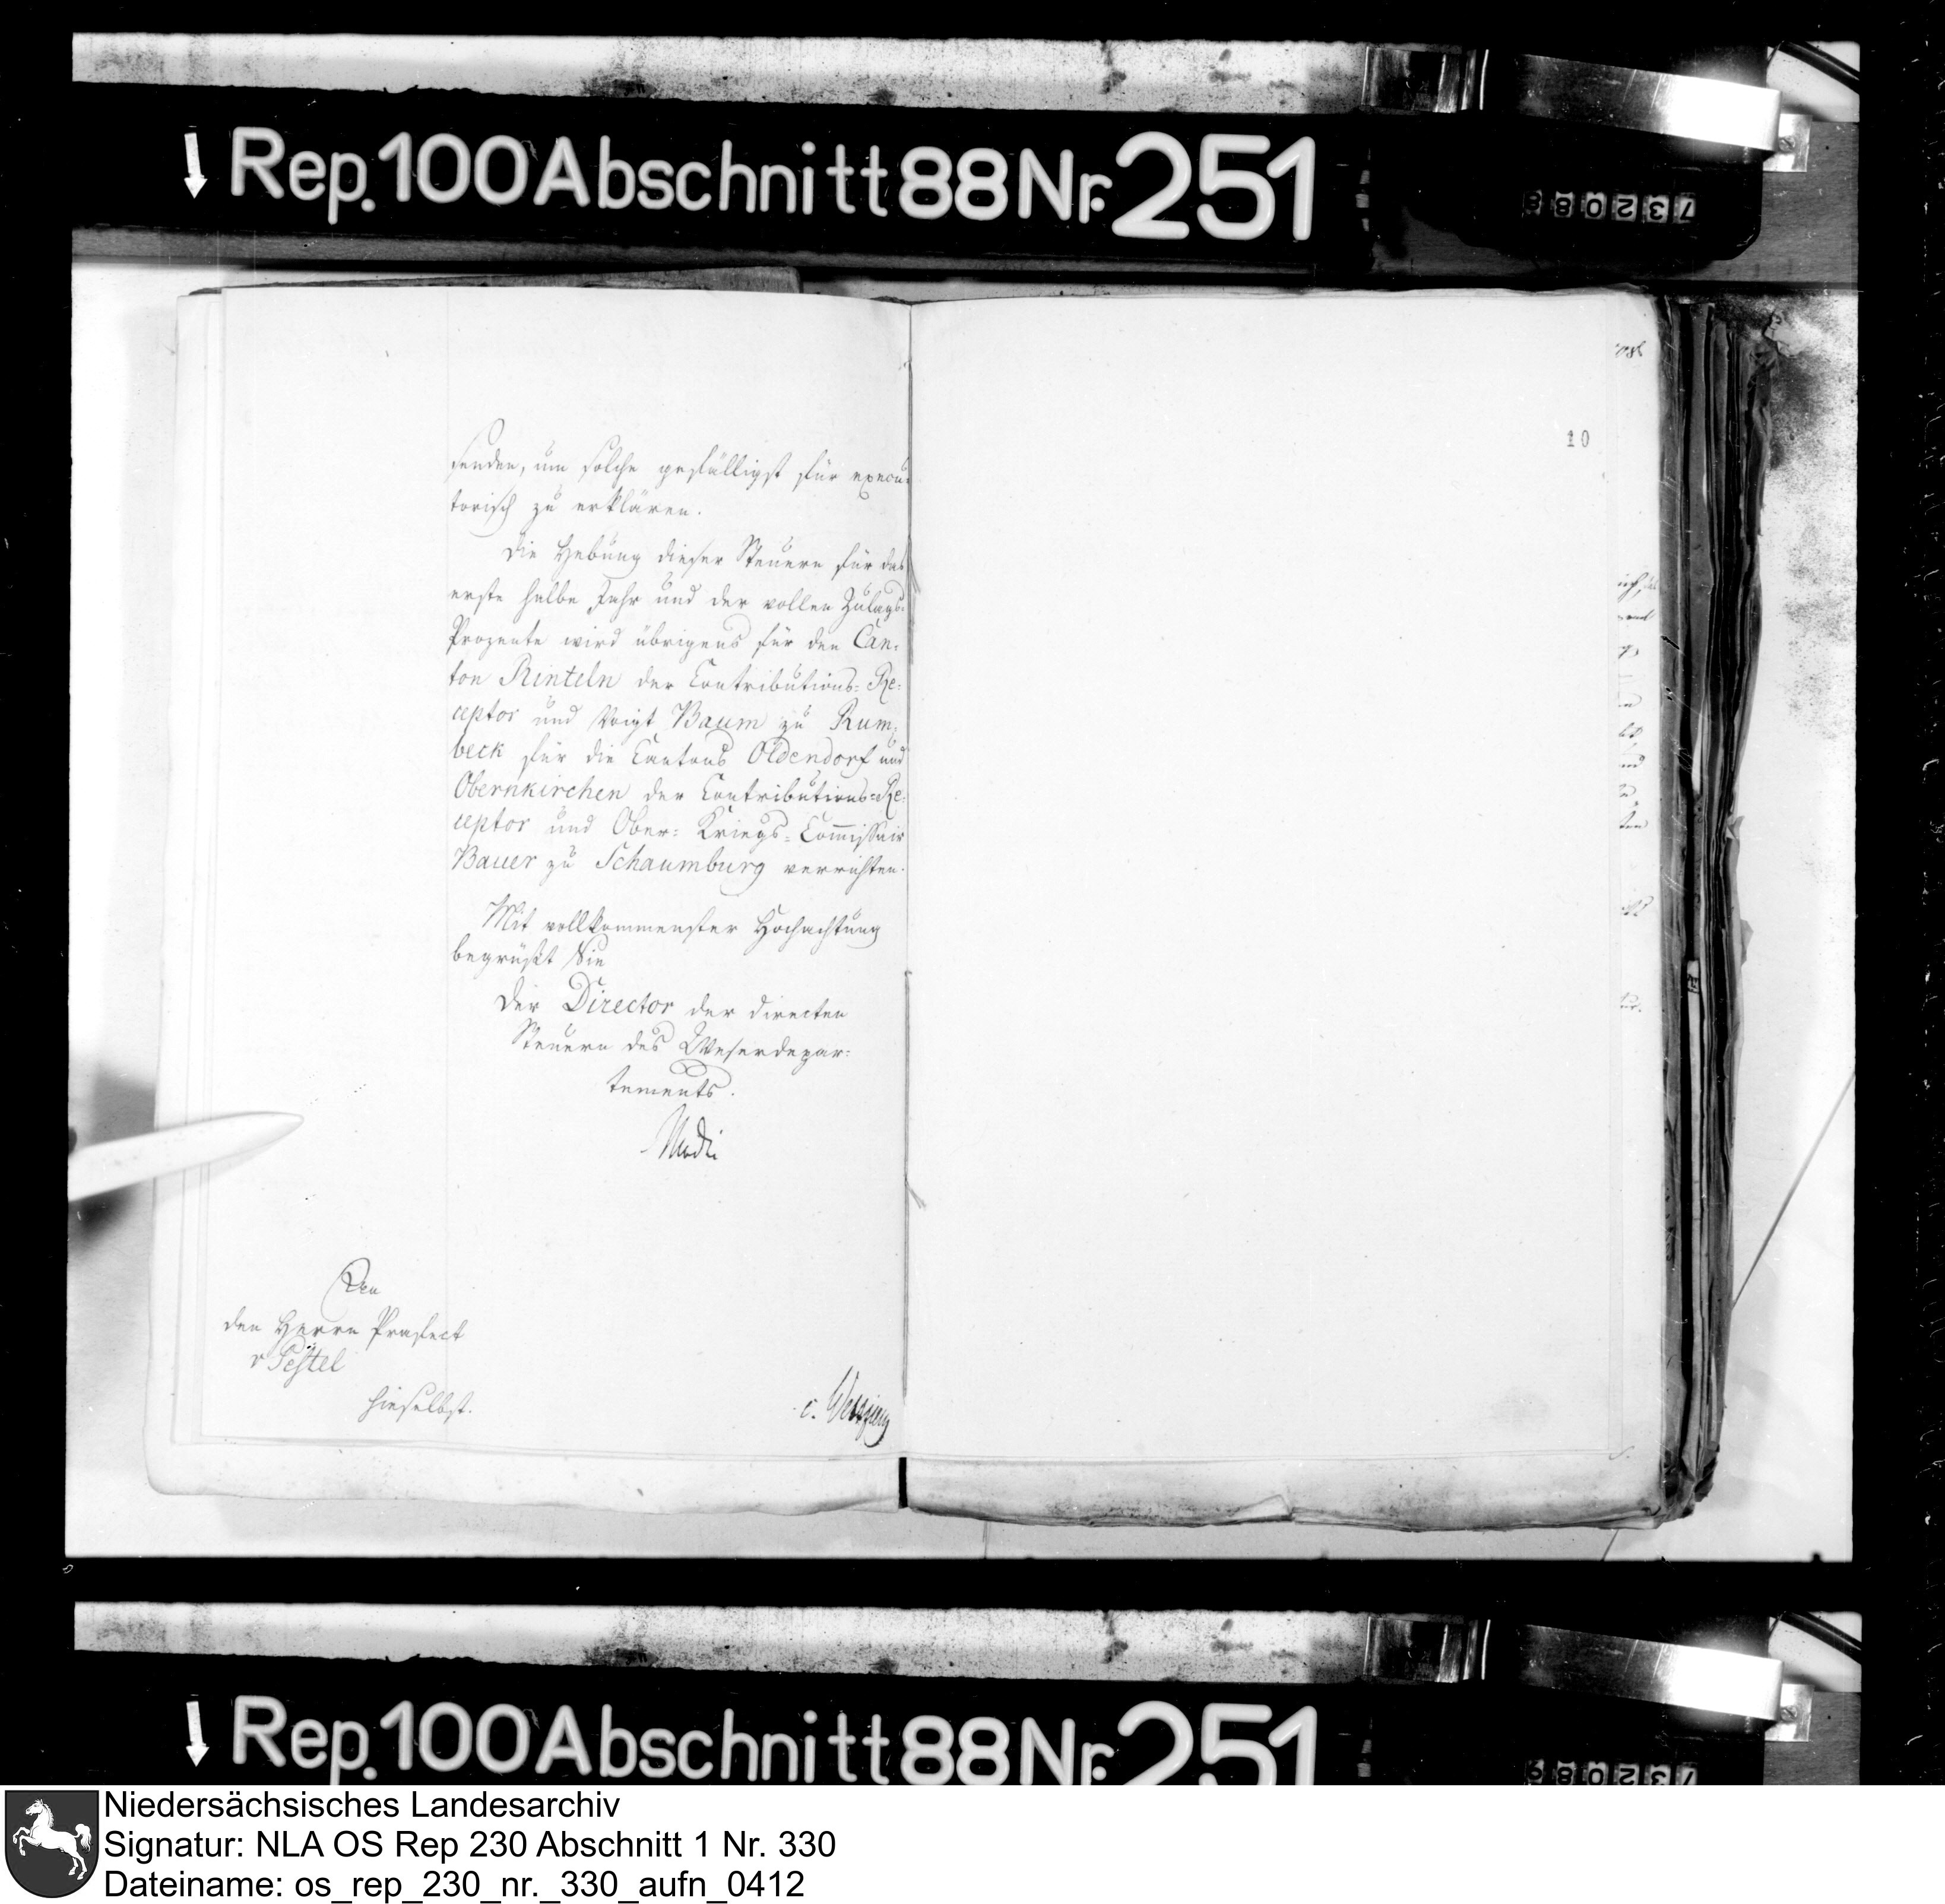 Rep. 100 Abschnitt 88 Nr. 251
732088
senden, um solche gefälligst für execu-
torisch zu erklären.
Die Hebung dieser Steuern für das
erste halbe Jahr und der vollen Zulags-
Prozente wird übrigens für den Can-
ton Rinteln der Contributions-Re-
ceptor und Voigt Baum zu Rum-
beck für die Cantons Oldendorf und
Obernkirchen der Contributions-Re-
ceptor und Ober-Kriegs-Commissair
Bauer zu Schaumburg verrichten.
Mit vollkommenster Hochachtung
begrüßt Sie
Der Director der directen
Steuern des Weserdepar-
tements.
An
den Herrn Praefect
v Pestel
hieselbst.
10
Rep. 100 Abschnitt 88 Nr. 251
732089
Niedersächsisches Landesarchiv
Signatur: NLA OS Rep 230 Abschnitt 1 Nr. 330
Dateiname: os_rep_230_nr._330_aufn_0412